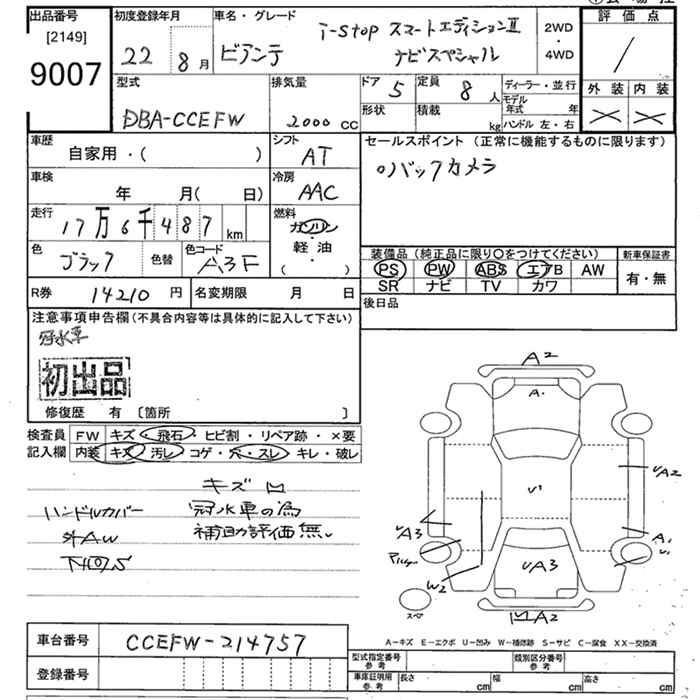 出品番号 初度登録年月 車名・グレード 評価点
[2149] i-stop スマートエディションⅡ 2WD
9007 22 8月 ビアンテ ナビスペシャル ・4WD
型式 排気量 ドア 5 定員 8人 ディーラー・並行 外装 内装
DBA-CCEFW 2000 CC 形状 積載 kg モデル年式 年
ハンドル 左・右
車歴 シフト セールスポイント (正常に機能するものに限ります)
自家用・( ) AT 。バックカメラ
車検 年 月( 日) 冷房 AAC
走行 17万6千487km 燃料 ガソリン
軽・油
( )
色 ブラック 色替 色コード A3F 装備品 (純正品に限り○をつけてください) 新車保証書
PS PW ABS エアB AW 有・無
SR ナビ TV カワ
R券 14210 円 名変期限 月 日 後日品
注意事項申告欄 (不具合内容等は具体的に記入して下さい)
冠水車
初出品
修復歴 有 〔箇所 〕
検査員 FW キズ・飛石・ヒビ割・リペア跡・×要
記入欄 内装 キズ 汚レ コゲ・穴・スレ キレ・破レ
キズ凹
ハンドルカバー 冠水車の為
外AW 補助評価無し
A2
A・
U1
UA2
UA3
A1
U1
UA3
W2
スペ
凹A2
A-キズ E-エクボ U-凹み W-補修跡 S-サビ C-腐食 XX-交換済
車台番号 CCEFW-214757
登録番号
型式指定番号 参考 類別区分番号 参考
車庫証明用 参考 長さ cm 幅 cm 高さ cm